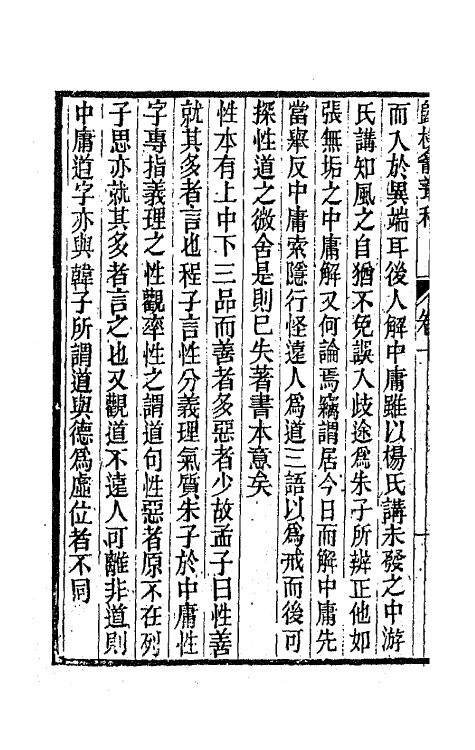 而入於異端耳後人解中庸雖以楊氏講未發之中游
氏講知風之自猶不免誤入歧途為朱子所辨正他如
張無垢之中庸解又何論焉竊謂居今日而解中庸先
當舉反中庸索隱行怪遠人為道三語以為戒而後可
探性道之微舍是則已失著書本意矣
性本有上中下三品而善者多惡者少故孟子曰性善
就其多者言也程子言性分義理氣質朱子於中庸性
字專指義理之性觀率性之謂道句性惡者原不在列
子思亦就其多者言之也又觀道不遠人可離非道則
中庸道字亦與韓子所謂道與德為虛位者不同